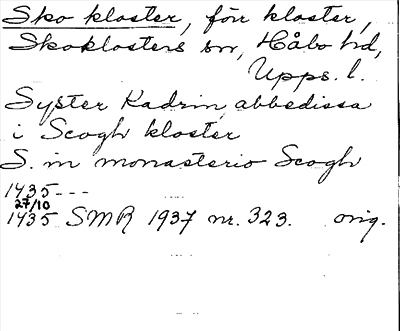 Sko kloster, förr kloster,
Skoklosters sn, Håbo hd,
Upps. l.
Syster Kadrin abbedissa
i Scogh kloster
S. in monasterio Scogh
1435---
27/10
1435 SMR 1937 nr. 323. orig.